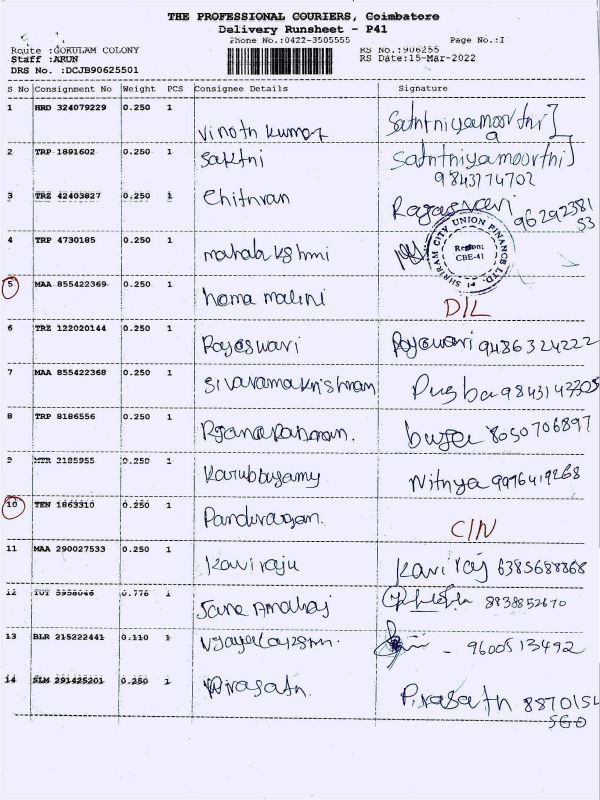 THE PROFESSIONAL COURIERS, Coimbatore
Delivery Runsheet - P41
Phone No.:0422-3505555 Page No.:1
Route :GOKULAM COLONY RS No.:906255
Staff :ARUN RS Date:15-Mar-2022
DRS No. :DCJB90625501
S No Consignment No Weight PCS Consignee Details Signature
1 HRD 324079229 0.250 1 Vinoth kumar
2 TRP 1891602 0.250 1 Sakthi
9843174702
3 TRZ 42403827 0.250 1
4 TRP 4730185 0.250 1 mahalakshmi
SHRIRAM CITY UNION FINANCE LTD.
Region:
CBE-41
5 MAA 855422369 0.250 1 homa malini D/L
6 TRZ 122020144 0.250 1 Rajeswari 9486324222
7 MAA 855422368 0.250 1 Sivaramakrishnan
8 TRP 8186556 0.250 1 8050706897
9 MTR 2185955 0.250 1 Karubbusamy Nithya 9976419268
10 TEN 1863310 0.250 1 Pandurangan C/N
11 MAA 290027533 0.250 1 Kaviraju Kaviraj 6385688868
12 TUT 5958046 0.776 1 8838852670
13 BLR 215222441 0.110 1 - 9600513492
14 SLM 291425201 0.250 1 Pirasath